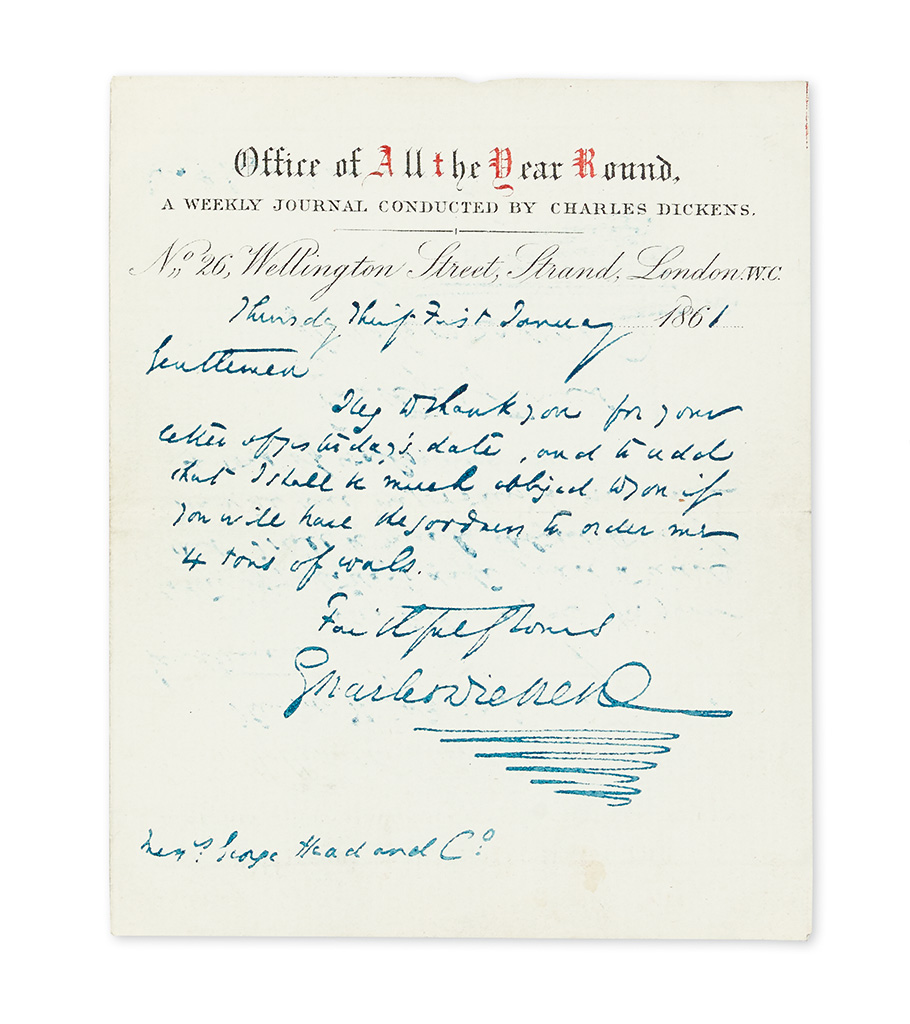 Office of All the Year Round,
A WEEKLY JOURNAL CONDUCTED BY CHARLES DICKENS.
No 26, Wellington Street, Strand, London. W.C.
Thursday Thirty First January 1861
Gentlemen
I beg to thank you for your
letter of yesterday's date, and to add
that I shall be much obliged to you if
you will have the goodness to order me
4 tons of coals.
Faithfully Yours
Charles Dickens
Messrs. George Head and Co.